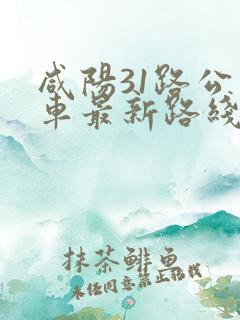 咸陽31路公
車最新路綫
抹茶鲱鱼
未经同意禁止转载